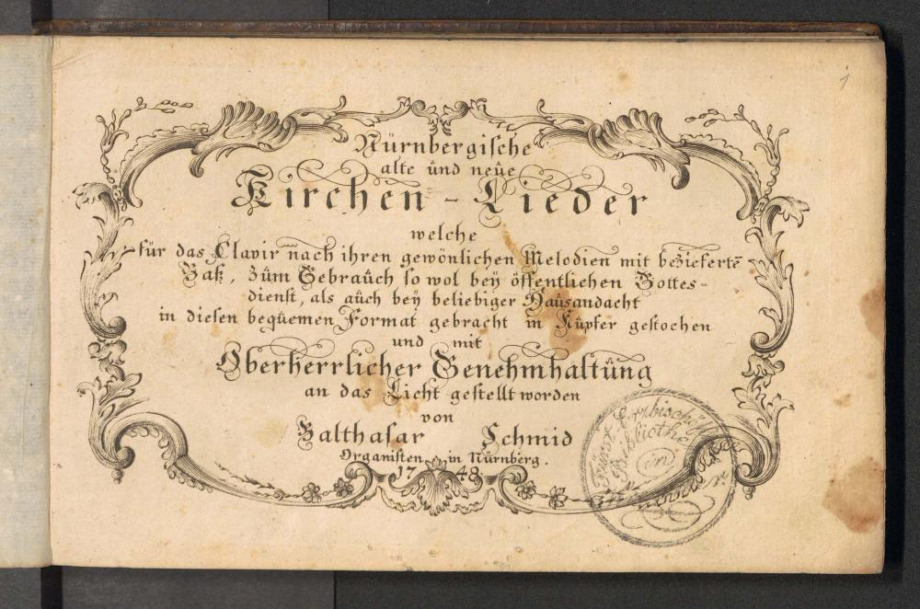 1
Nürnbergische
alte und neue
Kirchen-Lieder
welche
für das Clavir nach ihren gewönlichen Melodien mit bezieferte͂
Baß, zum Gebrauch so wol bey öffentlichen Gottes-
dienst, als auch bey beliebiger Hausandacht
in diesen bequemen Format gebracht in Kupfer gestochen
und mit
Oberherrlicher Genehmhaltung
an das Licht gestellt worden
von
Balthasar Schmid
Organisten in Nürnberg.
1748
Bibliothek
in